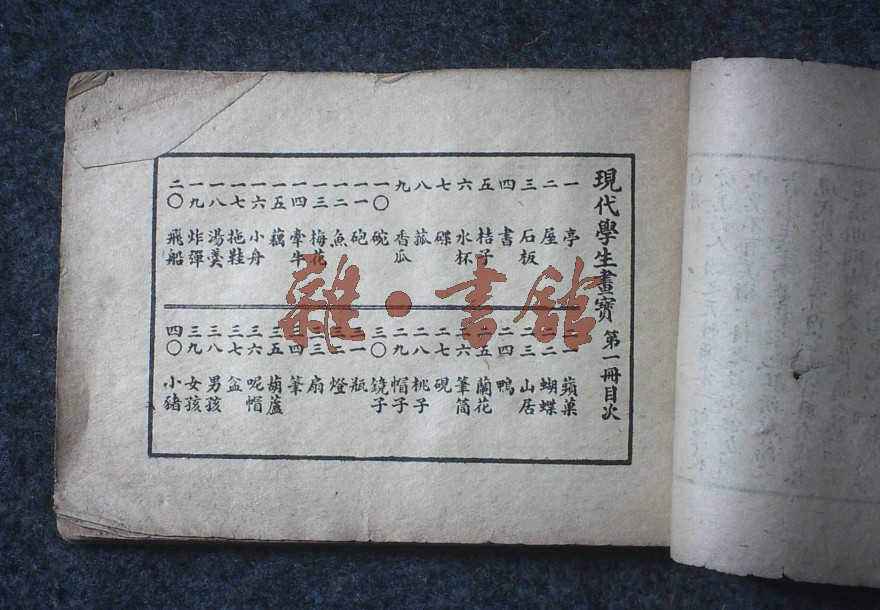 現代學生畫寶 第一冊目次
一 亭
二 屋
三 石板
四 書
五 桔子
六 水杯
七 碟
八 菰
九 香瓜
一〇 碗
一一 砲
一二 魚
一三 梅花
一四 牽牛
一五 藕
一六 小舟
一七 拖鞋
一八 湯羹
一九 炸彈
二〇 飛船
二一 蘋菓
二二 蝴蝶
二三 山居
二四 鴨
二五 蘭花
二六 筆筒
二七 硯
二八 桃子
二九 帽子
三〇 鏡子
三一 瓶
三二 燈
三三 扇
三四 筆
三五 葫蘆
三六 呢帽
三七 盆
三八 男孩
三九 女孩
四〇 小豬
雜·書館